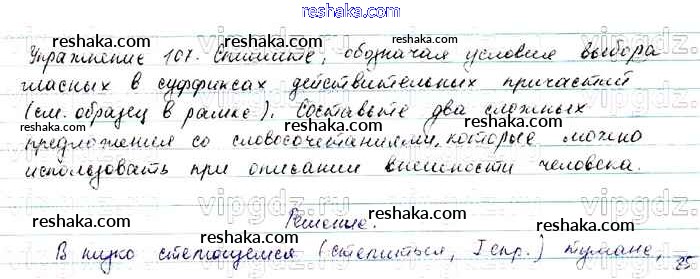 reshaka.com
Упражнение 107. Спишите, обозначая условия выбора
гласных в суффиксах действительных причастий
(см. образец в рамке). Составьте два сложных
предложения со словосочетаниями, которые можно
использовать при описании внешности человека.
Решение.
В низко стелющемся (стелиться, I спр.) тумане,
reshaka.com
reshaka.com
reshaka.com
reshaka.com
reshaka.com
reshaka.com
reshaka.com
reshaka.com
reshaka.com
vipgdz
vipgdz
vipgdz